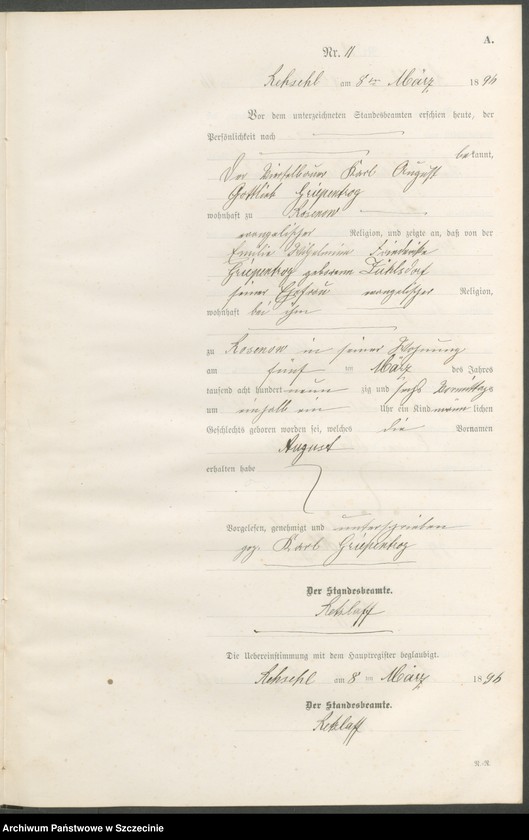 A.
Nr. 11
Rehsehl am 8ten März 1896
Vor dem unterzeichneten Standesbeamten erschien heute, der
Persönlichkeit nach
bekannt,
Der Karl August
Gottlieb Griepentrog
wohnhaft zu Rosenow
evangelischer Religion, und zeigte an, daß von der
Emilie Wilhelmine Friederike
Griepentrog geborenen Dühlsdorf
seiner Ehefrau evangelischer Religion,
wohnhaft bei ihm
zu Rosenow in seiner Wohnung
am fünf ten März des Jahres
tausend acht hundert neun zig und sechs Vormittags
um einhalb ein Uhr ein Kind männ lichen
Geschlechts geboren worden sei, welches die Vornamen
August
erhalten habe
Vorgelesen, genehmigt und unterschrieben
gez. Karl Griepentrog
Der Standesbeamte.
Retzlaff
Die Uebereinstimmung mit dem Hauptregister beglaubigt.
Rehsehl am 8 ten März 1896
Der Standesbeamte.
Retzlaff
R.-R.
Archiwum Państwowe w Szczecinie